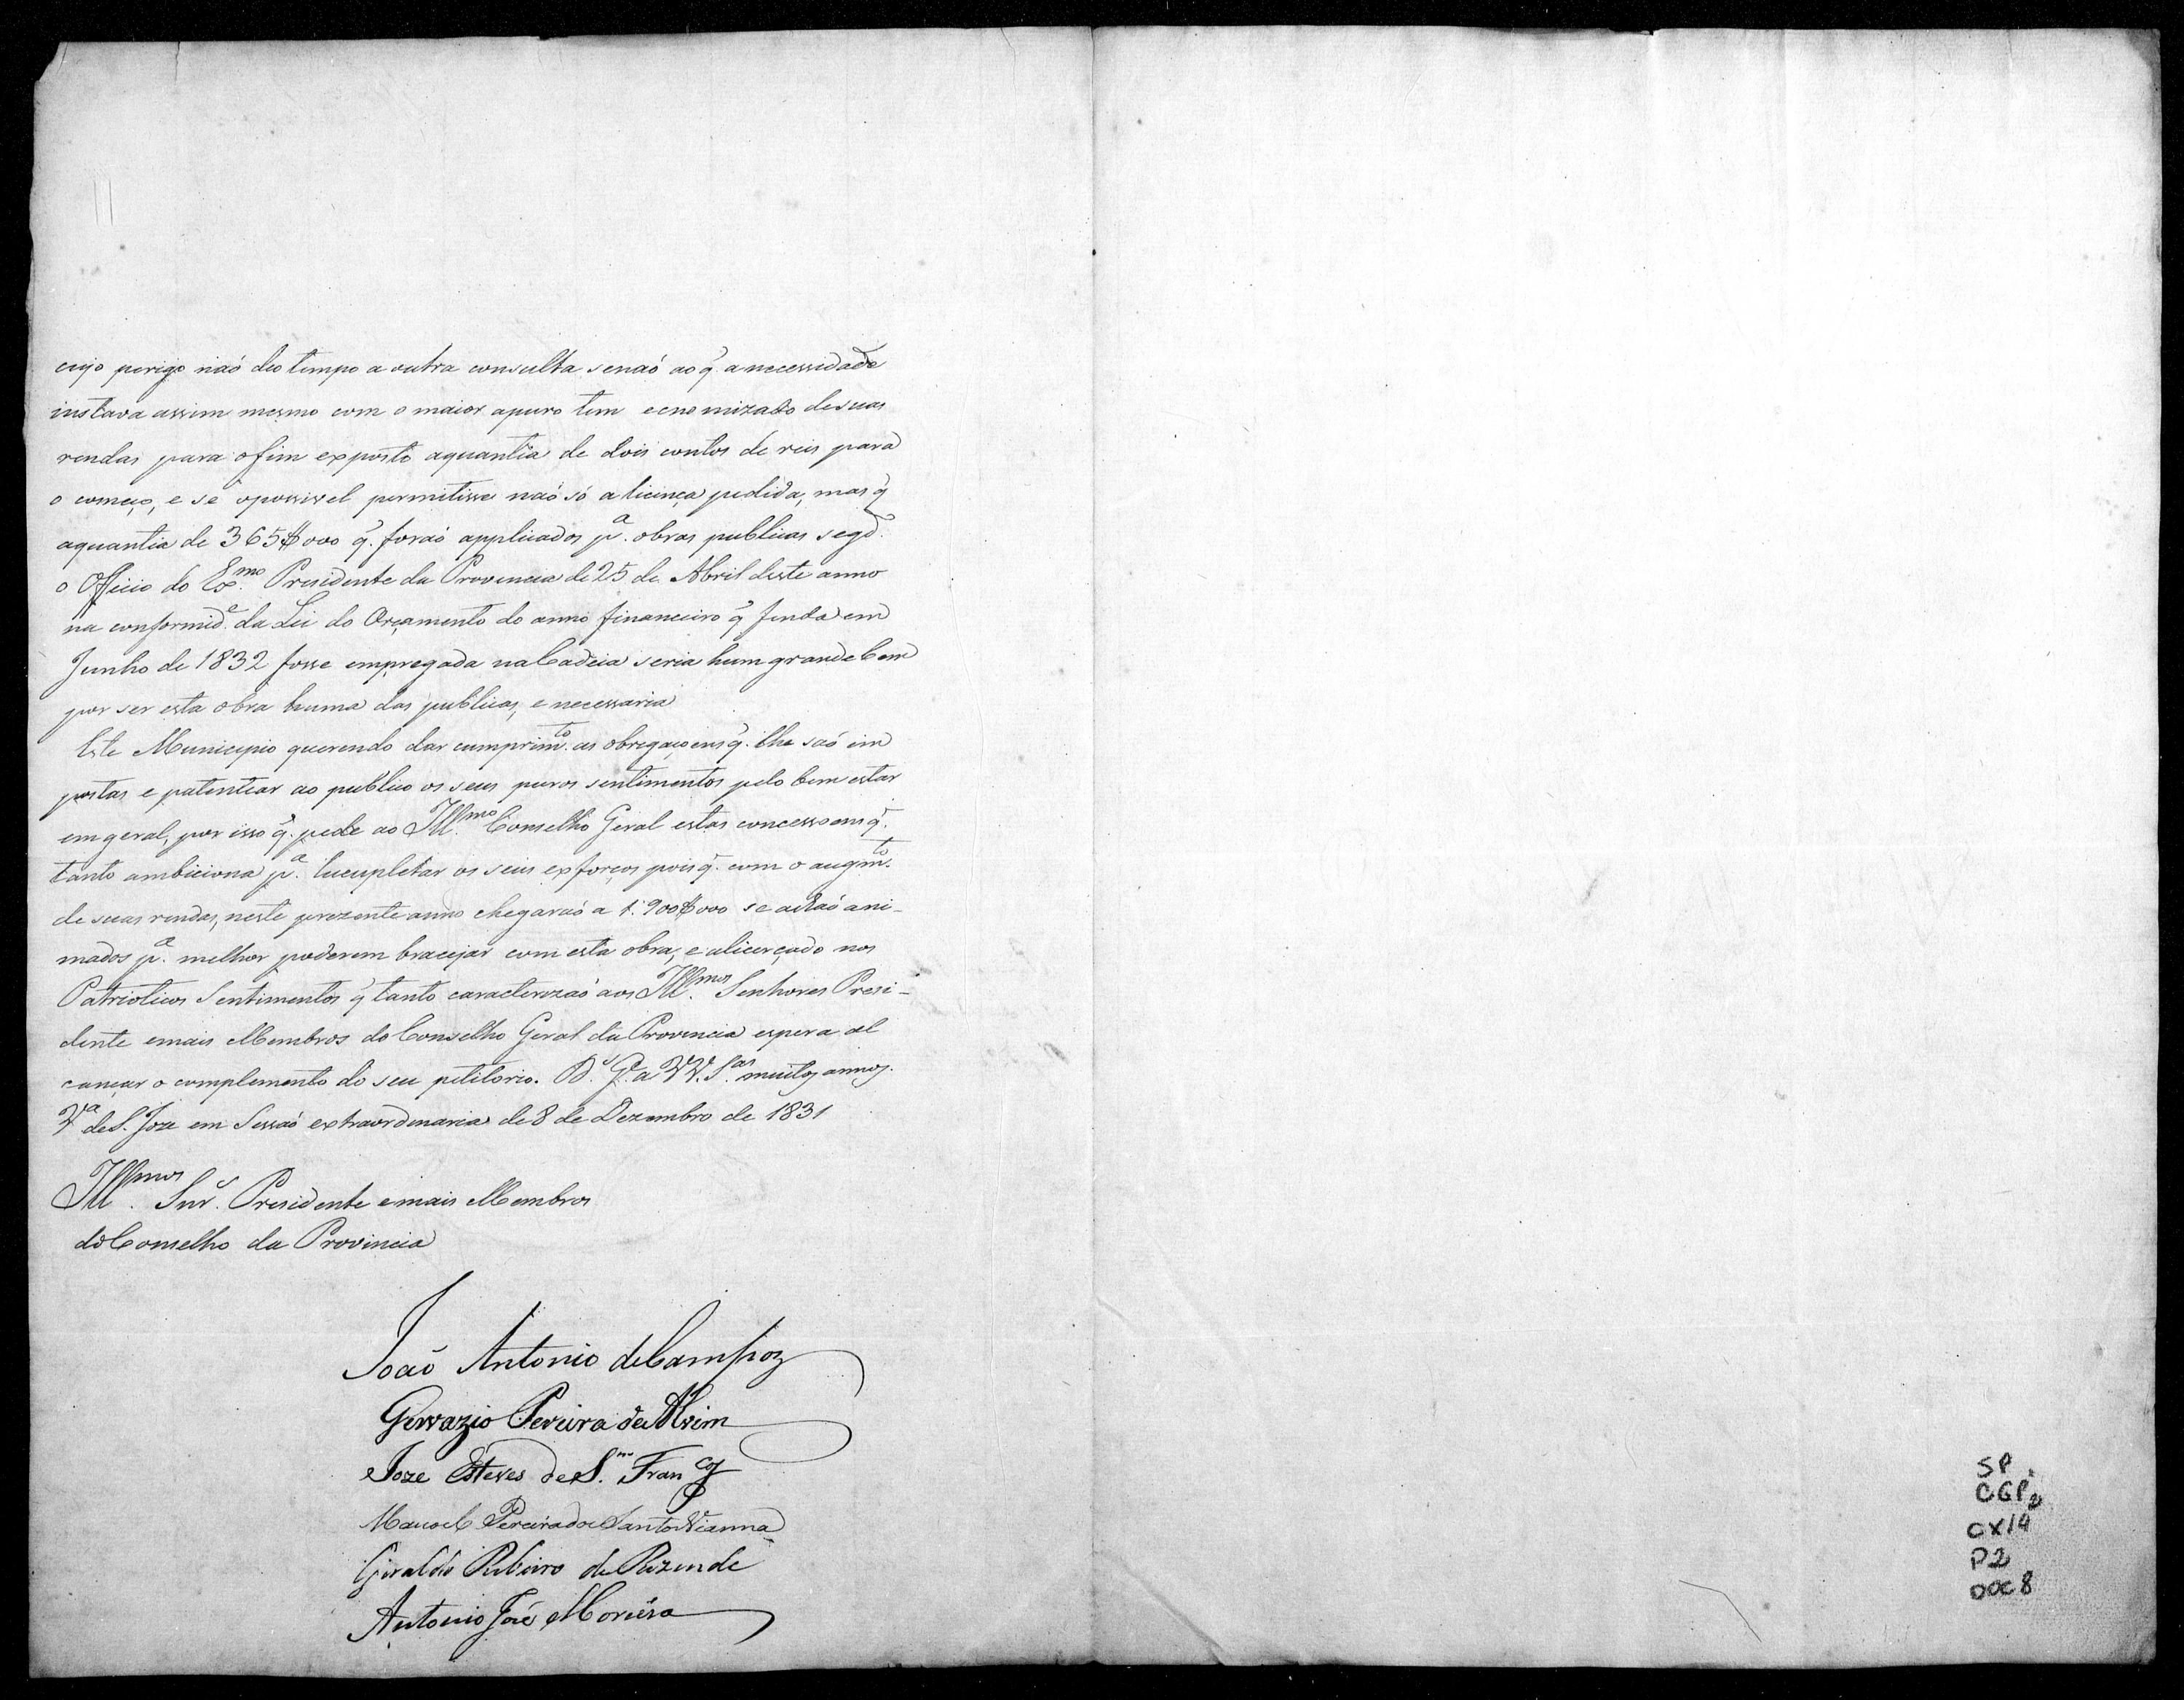 cujo perigo naõ deo tempo a outra consulta senaõ ao q̃ a necessidade
instava assim mesmo com o maior apuro tem ecnomizado de suas
rendas para o fim exposto aquantia de dois contos de reis para
o começo, e se o possivel permitisse naõ só a licença pedida, mas q̃
aquantia de 365$000 q̃. foraõ applicados p.ª obras publicas segd.º
o Officio do Ex.mo Presidente da Provincia de 25 de Abril deste anno
na conformid.e da Lei do Orçamento do anno financeiro q̃ finda em
Junho de 1832 fosse empregada na Cadeia seria hum grande bem
por ser esta obra huma das publicas, e necessaria
Este Municipio querendo dar cumprim.to as obregaçoens q̃. lhe saõ im
postas e patentiar ao publico os seus puros sentimentos pelo bem estar
em geral, por isso q̃. pede ao Ill.mo Conselho Geral estas concessoens q̃.
tanto ambiciona p.ª lucupletar os seus exforços pois q̃. com o augm.to
de suas rendas, neste prezente anno chegaraõ a 1:900$000 se achaõ ani-
mados p.ª melhor poderem bracejar com esta obra, e alicerçado nos
Patrioticos Sentimentos q̃ tanto caracterizaõ aos Ill.mos Senhores Presi-
dente e mais Membros do Conselho Geral da Provincia espera al
cançar o complemento do seu petitorio. D.s G.e a VV. S.as muitos annos.
V.ª de S. Joze em Sessaõ extraordinaria de 8 de Dezembro de 1831
Ill.mos Snr.s Presidente e mais Membros
do Conselho da Provincia
Joaõ Antonio de Campos
Gervazio Pereira de Alvim
Joze Esteves de S.m Fran.co
Manoel Pereira dos Santos Vianna
Giraldo Ribeiro de Rezende
Antonio José Moreira
SP
CGP2
CX14
P2
DOC 8